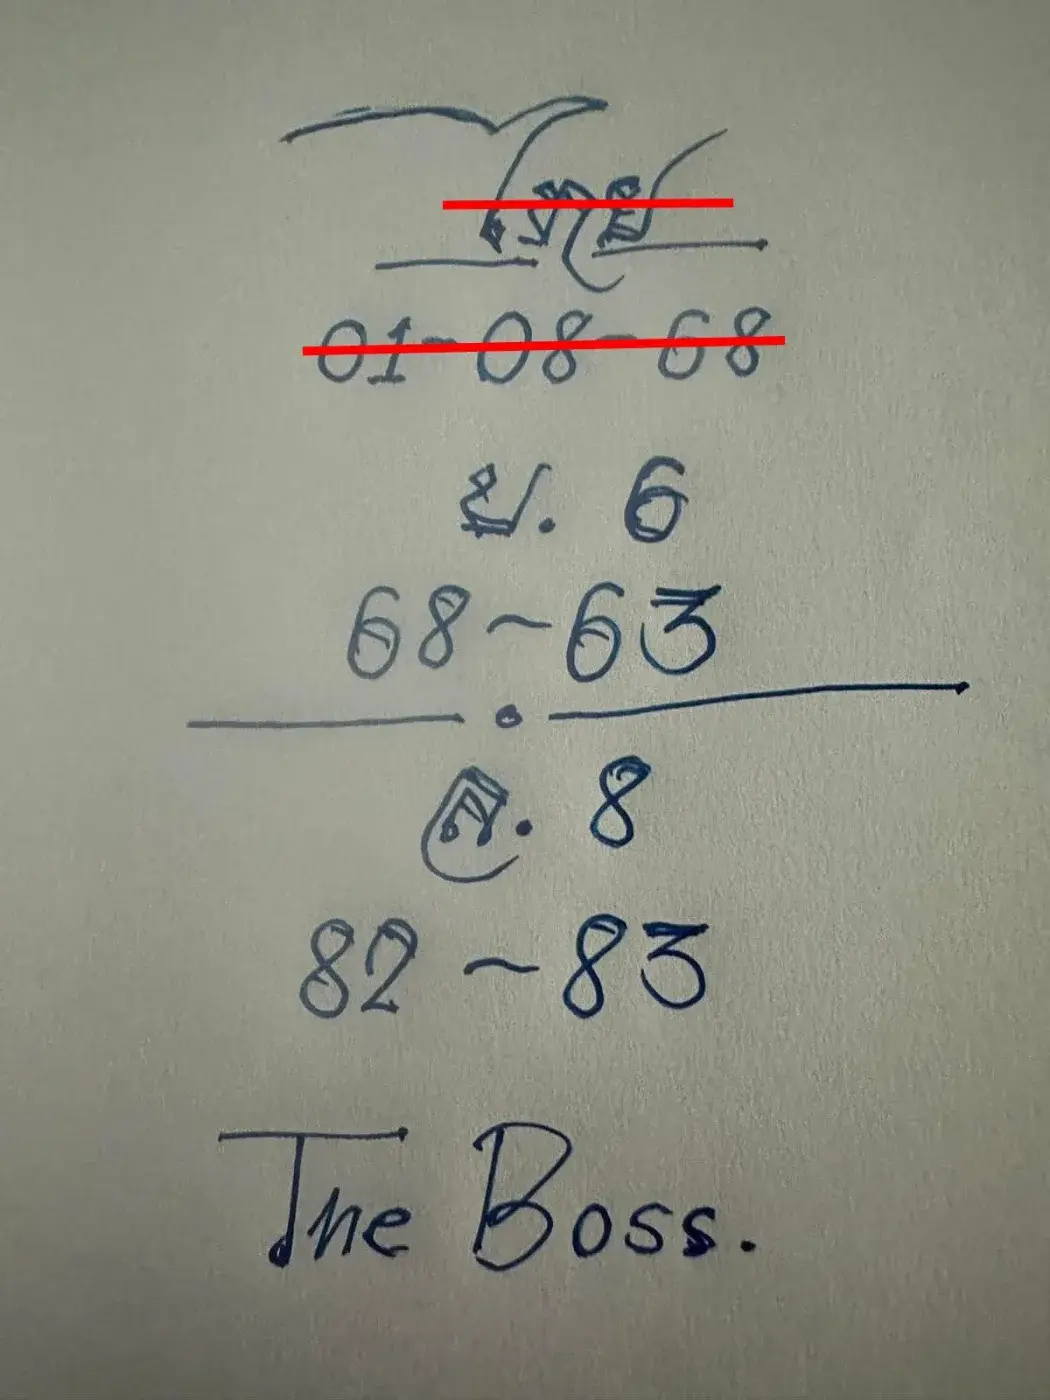 ไทย
01-08-68
ย. 6
68-63
ล. 8
82-83
The Boss.